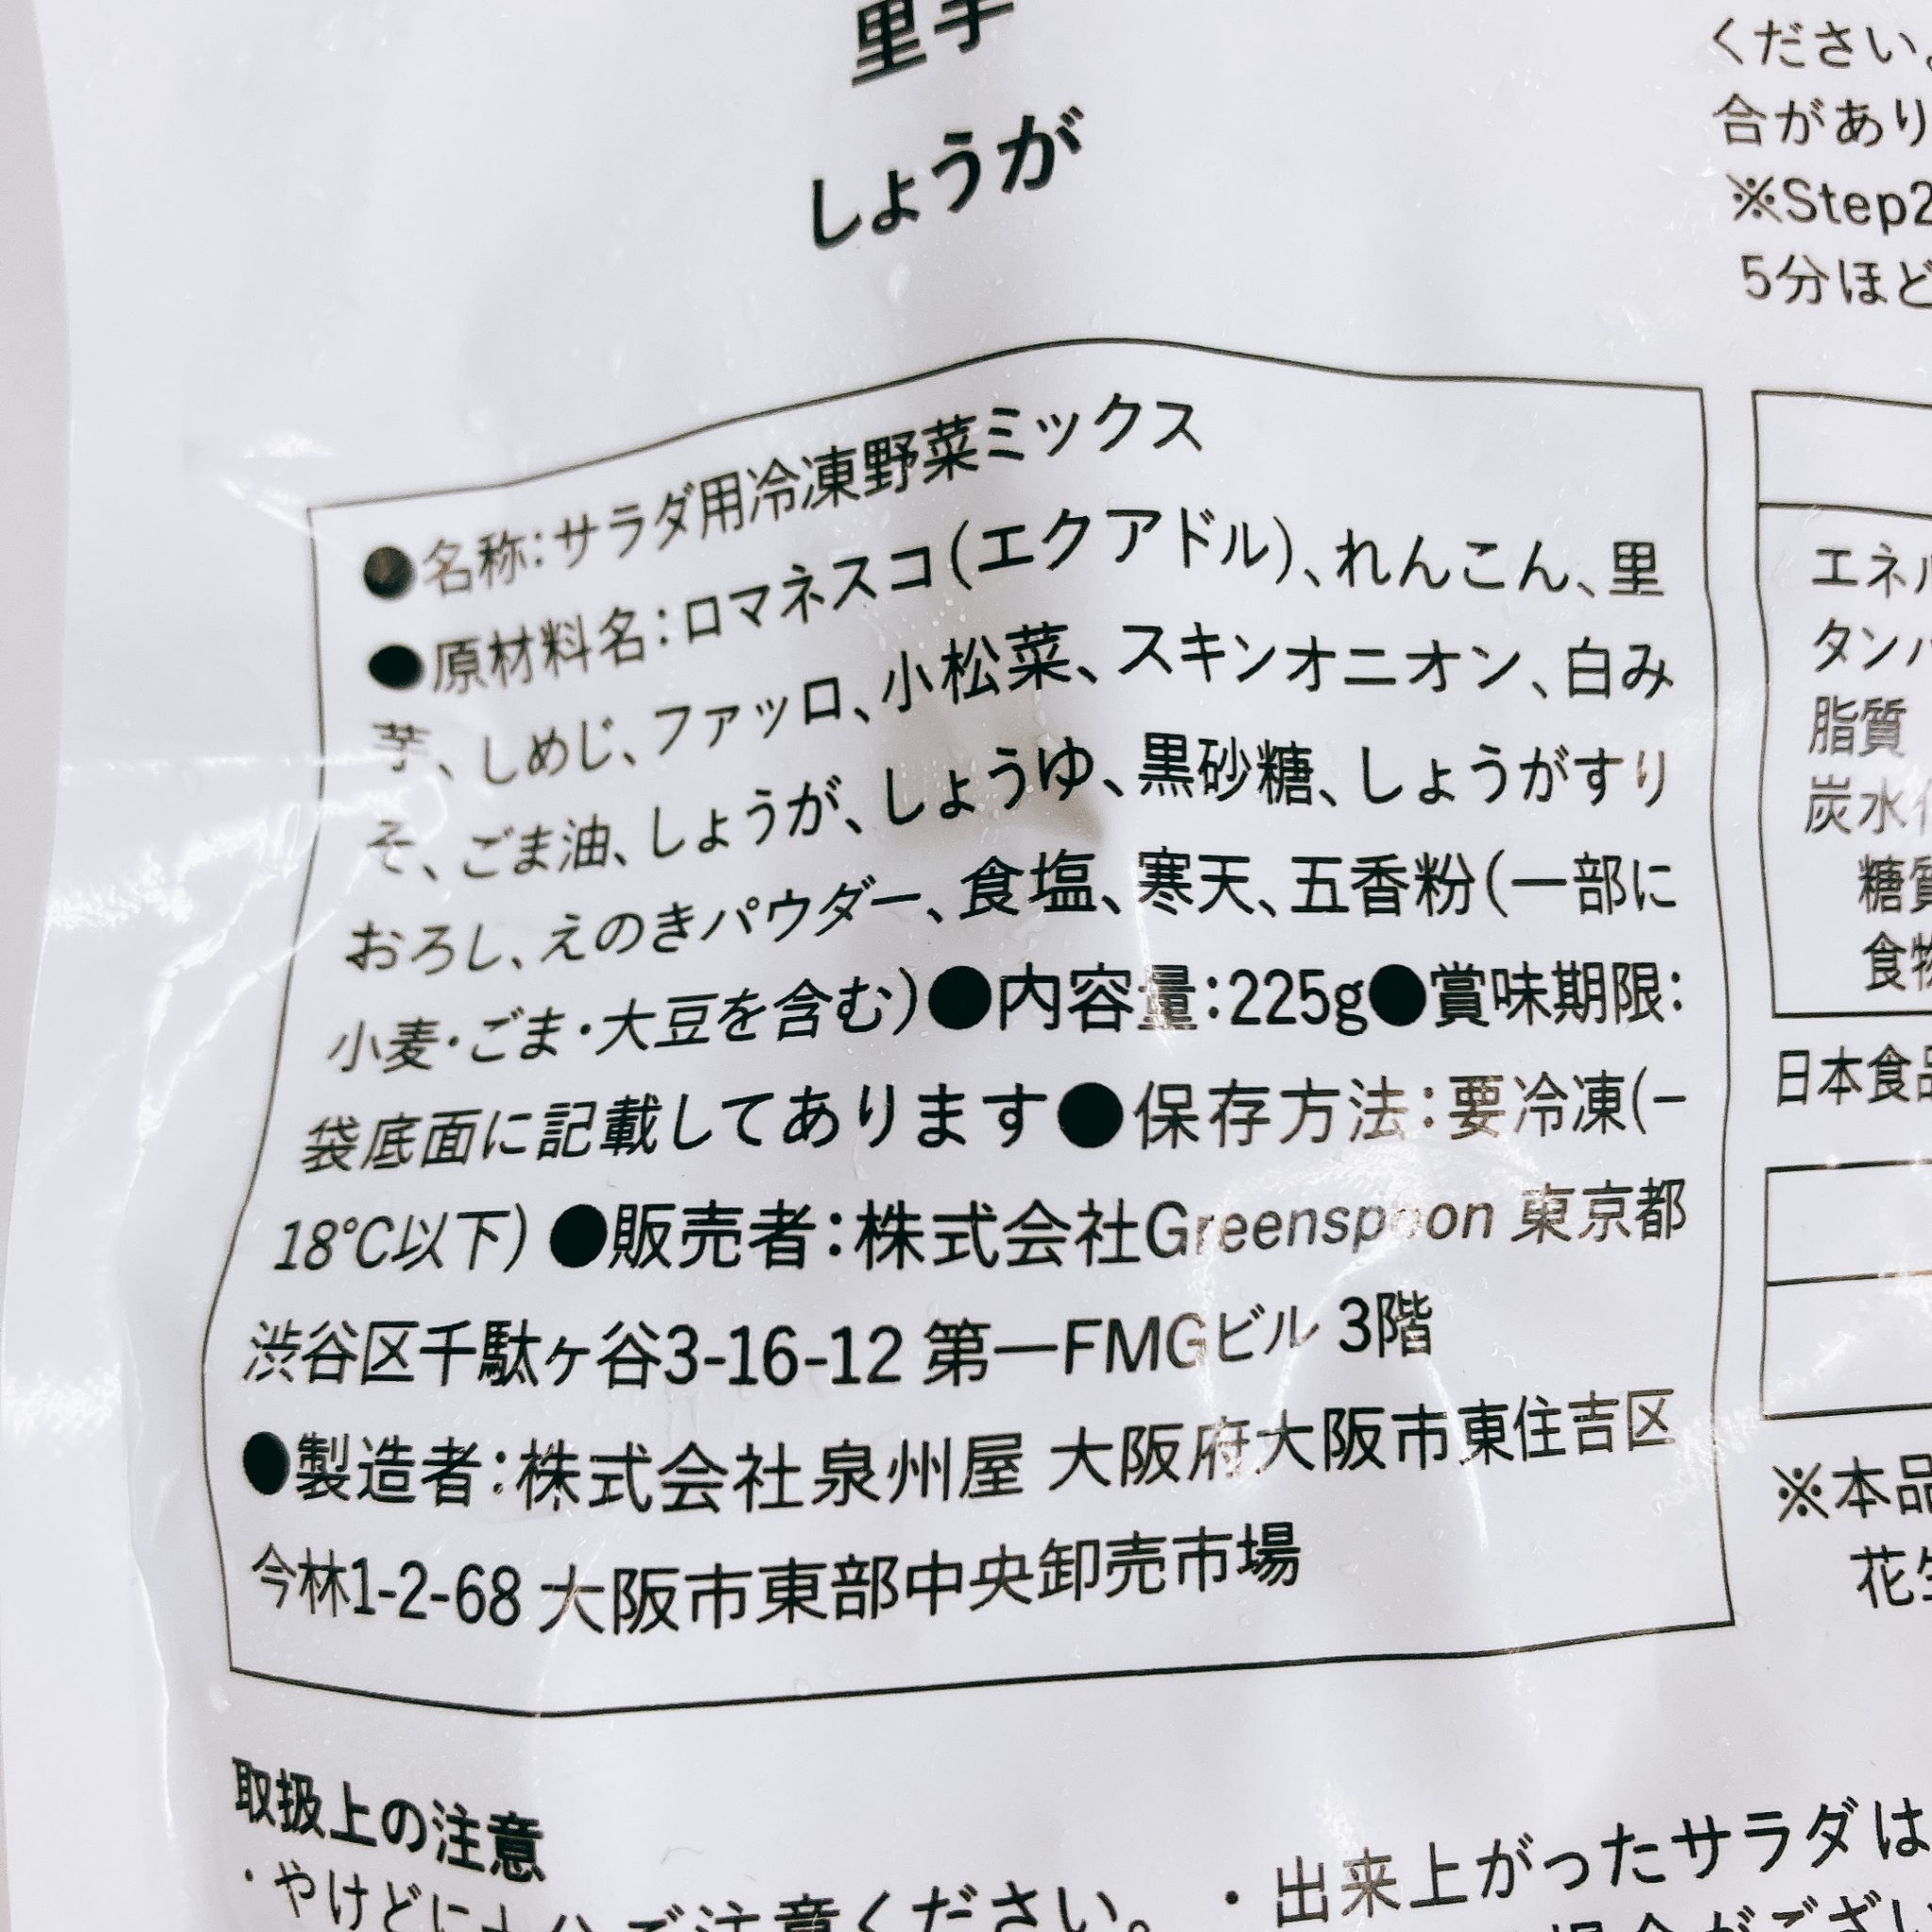 里芋
しょうが
ください。
合があり
※Step2
5分ほど
●名称:サラダ用冷凍野菜ミックス
●原材料名:ロマネスコ(エクアドル)、れんこん、里
芋、しめじ、ファッロ、小松菜、スキンオニオン、白み
そ、ごま油、しょうが、しょうゆ、黒砂糖、しょうがすり
おろし、えのきパウダー、食塩、寒天、五香粉(一部に
小麦・ごま・大豆を含む)●内容量:225g●賞味期限:
袋底面に記載してあります●保存方法:要冷凍(−
18℃以下) ●販売者:株式会社Greenspoon 東京都
渋谷区千駄ヶ谷3-16-12 第一FMGビル 3階
●製造者:株式会社泉州屋 大阪府大阪市東住吉区
今林1-2-68 大阪市東部中央卸売市場
エネル
タンパ
脂質
炭水化
糖質
食物
日本食品
※本品
花生
取扱上の注意
・やけどに十分ご注意ください。 ・出来上がったサラダは